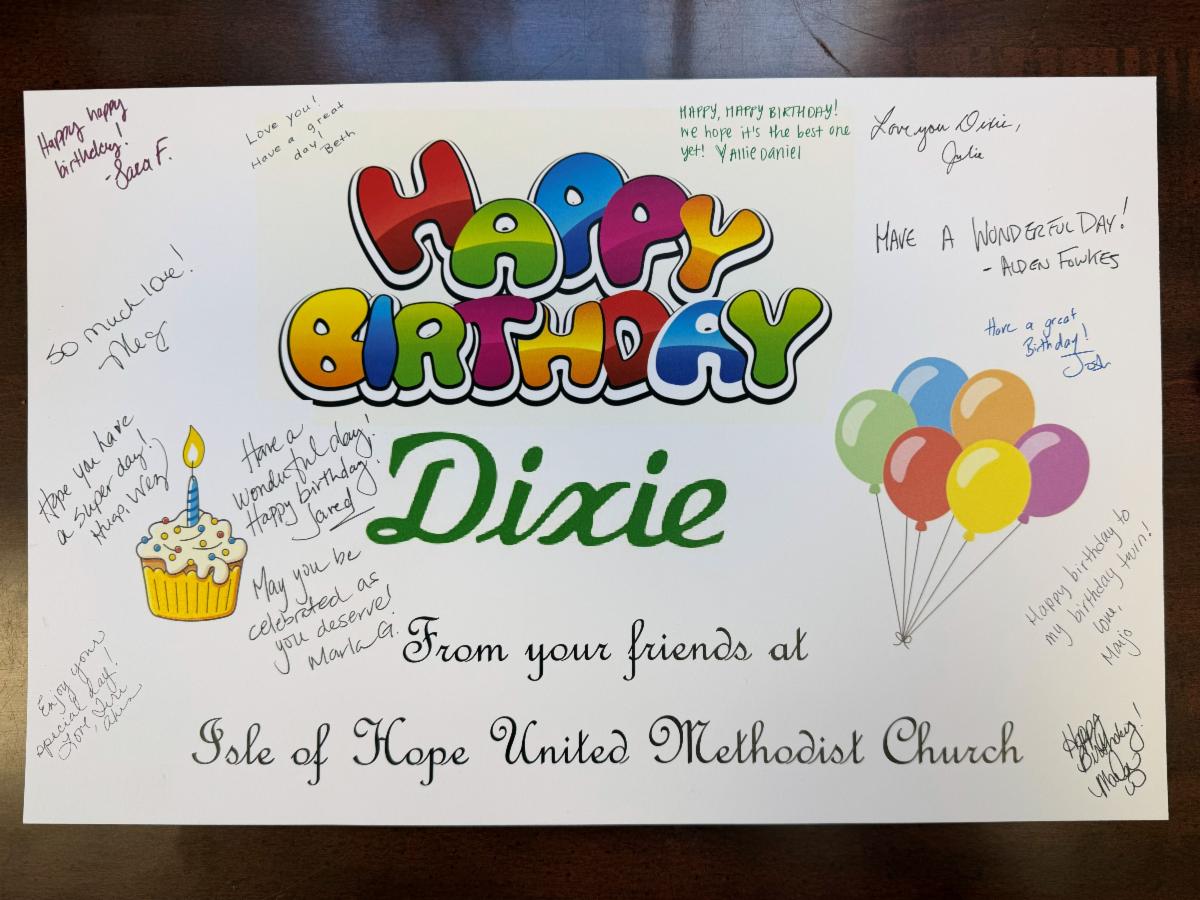 Happy happy
birthday!
-Sara F.
Love you!
Have a great
day!
Beth
HAPPY, HAPPY BIRTHDAY!
we hope it's the best one
yet! ♥ Allie Daniel
Love you Dixie,
Julie
HAPPY
BIRTHDAY
HAVE A WONDERFUL DAY!
- ALDEN FOWKES
So much love!
Meg
Have a great
Birthday!
Josh
Hope you have
a super day!
Hugs, Wez
Have a
wonderful day!
Happy birthday!
Jared
Dixie
May you be
celebrated as
you deserve!
Marla G.
Happy birthday to
my birthday twin!
love,
Marjo
From your friends at
Enjoy your
special day!
Love,
Isle of Hope United Methodist Church
Happy
Birthday!